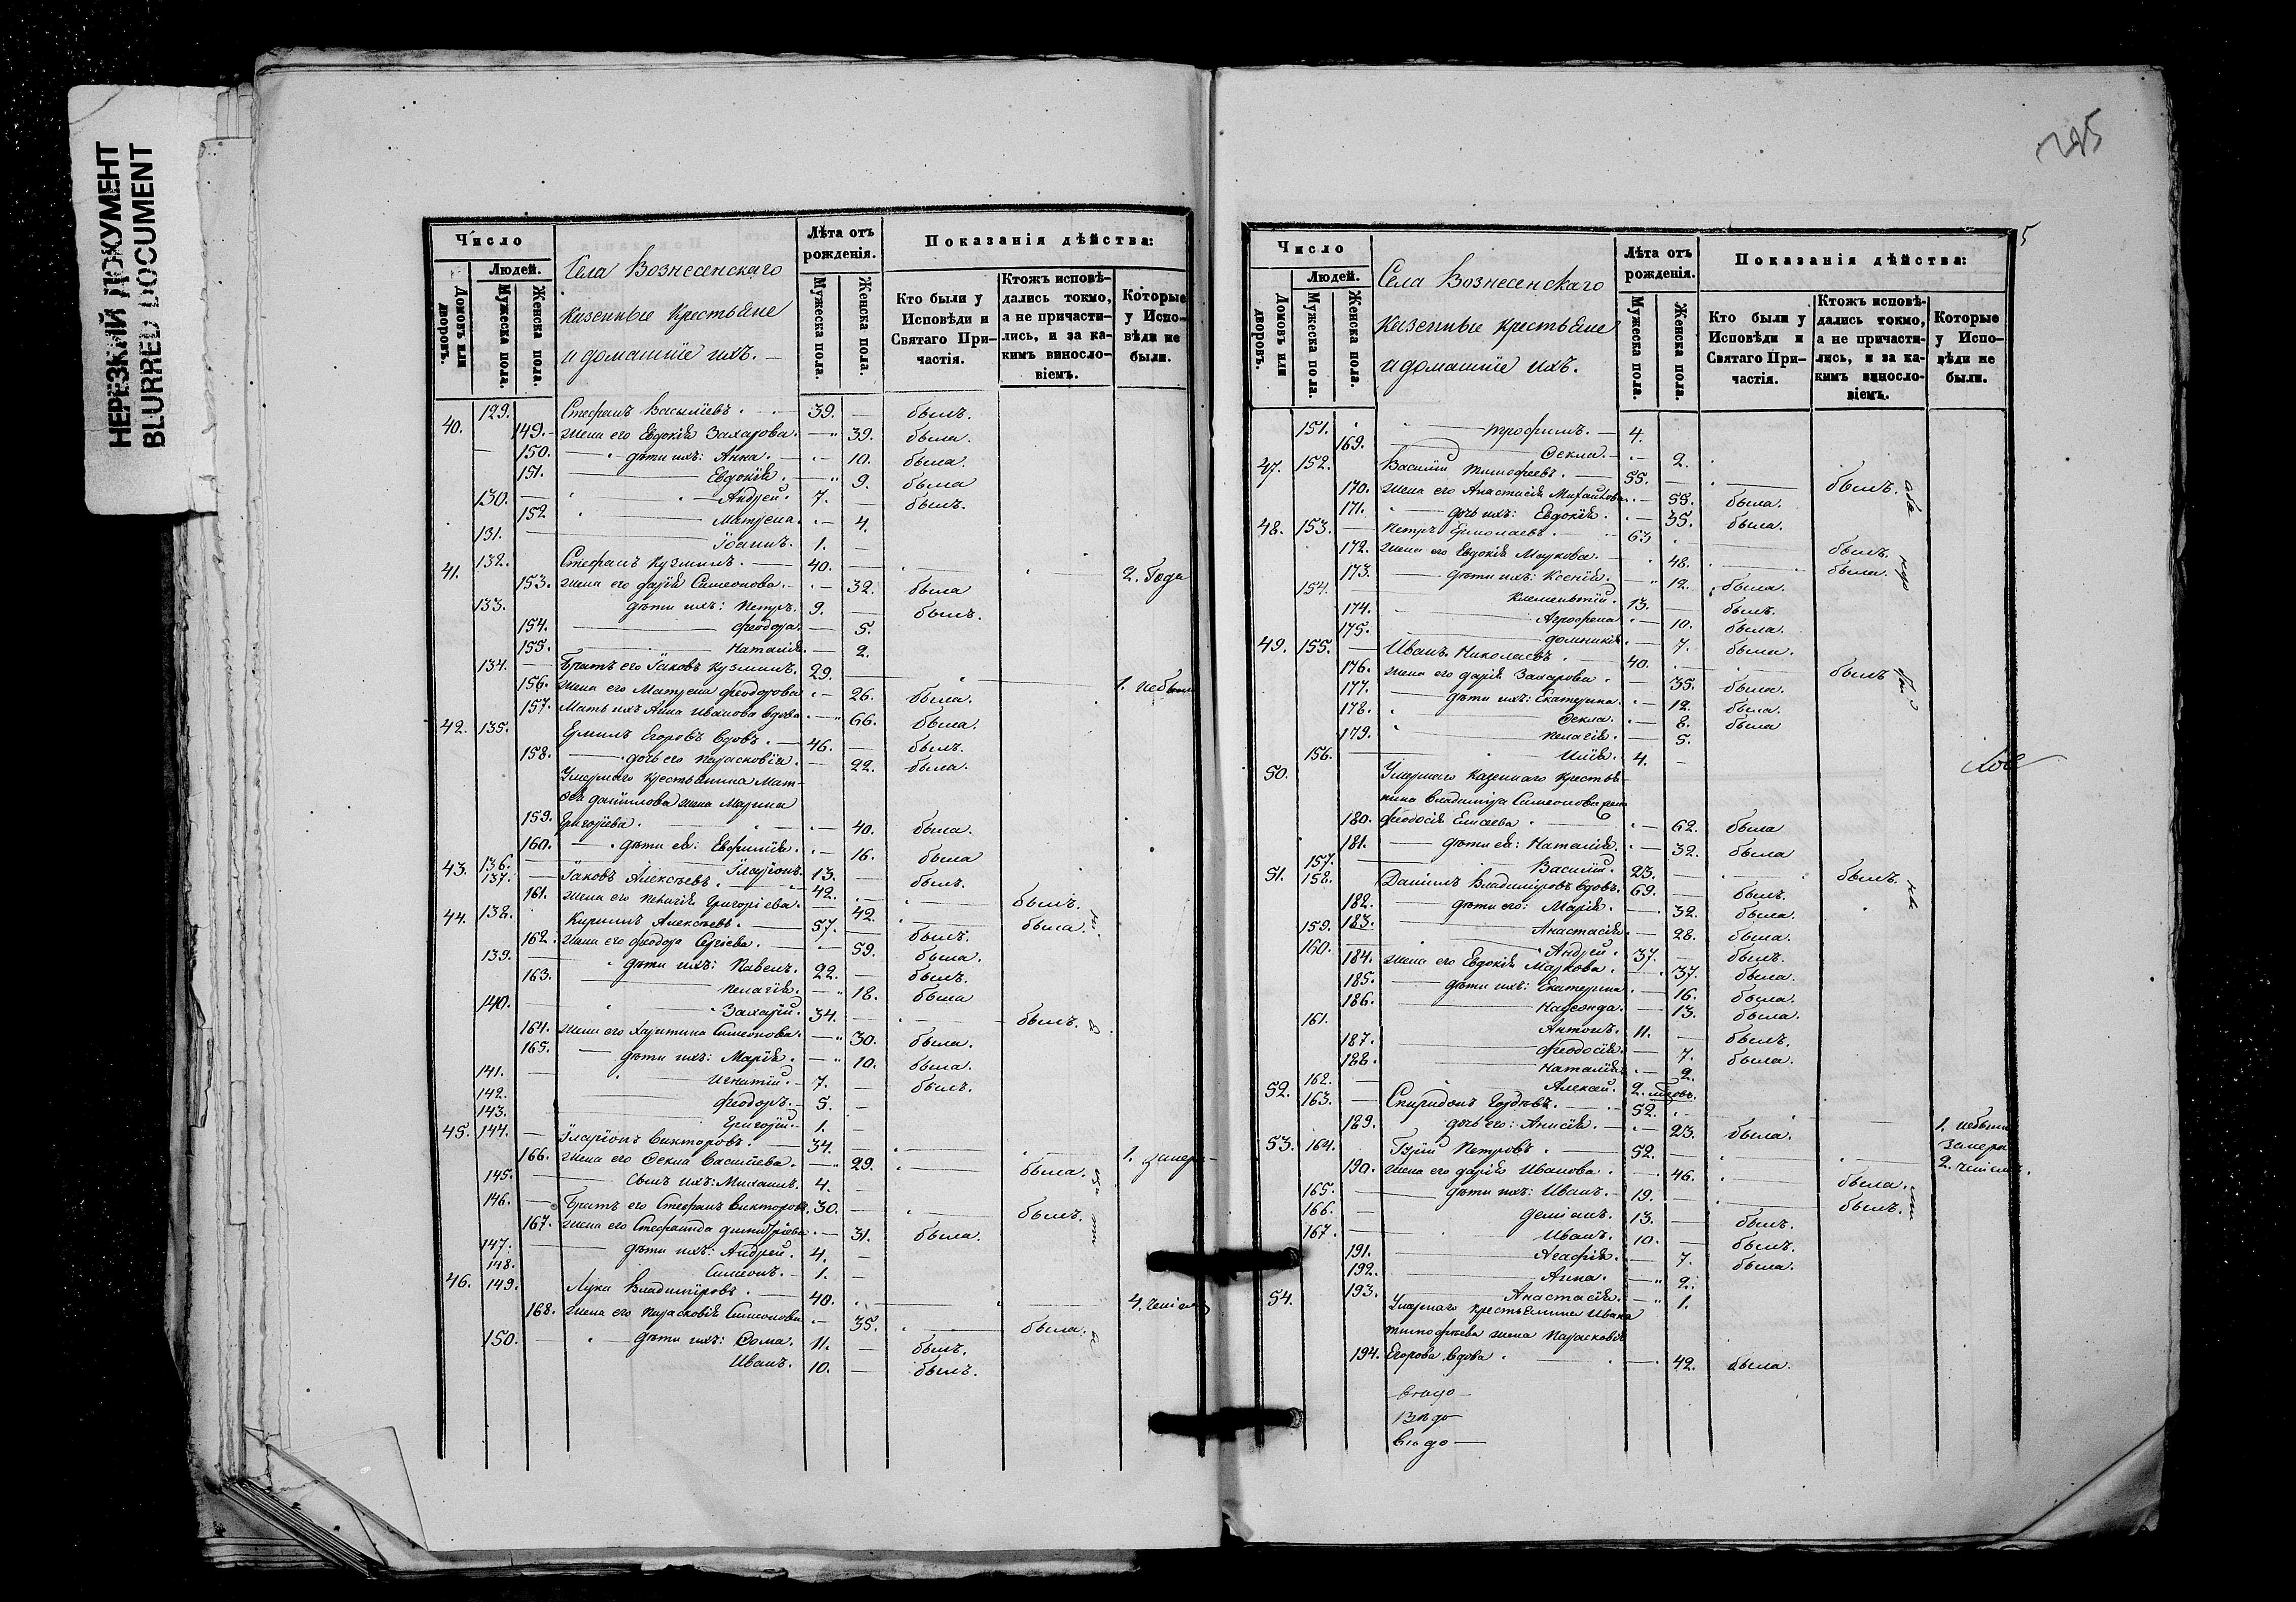 НЕРЕЗКИЙ ДОКУМЕНТ
BLURRED DOCUMENT
Число
Людей.
Домовъ или дворовъ.
Мужеска пола.
Женска пола.
Села Вознесенскаго
казенные крестьяне
и домашніе ихъ.
Лѣта отъ рожденія.
Мужеска пола.
Женска пола.
Показанія дѣйства:
Кто были у Исповѣди и Святаго Причастія.
Ктожъ исповѣдались токмо, а не причастились, и за какимъ винословіемъ.
Которые у Исповѣди не были.
40. 129. Стефанъ Васильевъ. 39. — былъ.
149. жена его Евдокія Захарова. — 39. была.
150. дѣти ихъ: Анна. — 10. была.
151. Евдокія. — 9. была
130. — Андрей. 7. — былъ.
152 Матрена. — 4.
131. Іоаннъ. 1. —
41. 132. Стефанъ Кузминъ. 40. — 2. года
153. жена его Дарія Симеонова. — 32. была
133. дѣти ихъ: Петръ. 9. — былъ.
154. Феодора. — 5.
155. Наталія. — 2.
134. — Братъ его Іаковъ Кузминъ. 29. — 1. небылъ
156. жена его Матрена Феодорова — 26. была.
157. Мать ихъ Анна Иванова вдова. — 66. была.
42. 135. Ермилъ Егоровъ вдовъ. 46. — былъ.
158. дочь его Парасковія. — 22. была.
Умершаго крестьянина Мат-
ѳея Данилова жена Марина
159. Григорьева. — 40. была.
160. дѣти ея: Евфимія. — 16. была
136. Іларіонъ. 13. — былъ.
43. 137. — Іаковъ Алексѣевъ. 42. — былъ.
161. жена его Пелагія Григоріева. — 42. была.
44. 138. Кирилъ Алексѣевъ. 57. — былъ.
162. жена его Феодора Сергіева. — 59. была.
139. дѣти ихъ: Павелъ. 22. — былъ.
163. Пелагія. — 18. была
140. Захарій. 34. — былъ.
164. жена его Харитина Симеонова. — 30. была.
165. дѣти ихъ: Марія. — 10. была.
141. — Игнатій. 7. — былъ.
142. Феодоръ. 5. —
143. Григорій. 1. —
45. 144. — Іларіонъ Викторовъ. 34. —
166. жена его Ѳекла Васильева. — 29. была.
145. Сынъ ихъ: Михаилъ. 4. —
146. — Братъ его Стефанъ Викторовъ. 30. — былъ.
167. жена его Стефанида Димитріева — 31. была.
147. дѣти ихъ: Андрей. 4. —
148. Симеонъ. 1. —
46. 149. Лука Владиміровъ. 40.
168. жена его Парасковія Симеонова — 35. была.
150. — дѣти ихъ: Ѳома. 11. — былъ.
Иванъ. 10. — былъ.
5
Число
Людей.
Домовъ или дворовъ.
Мужеска пола.
Женска пола.
Села Вознесенскаго
казенные крестьяне
и домашніе ихъ.
Лѣта отъ рожденія.
Мужеска пола.
Женска пола.
Показанія дѣйства:
Кто были у Исповѣди и Святаго Причастія.
Ктожъ исповѣдались токмо, а не причастились, и за какимъ винословіемъ.
Которые у Исповѣди не были.
151. Трофимъ. 4.
169. Ѳекла. — 2.
47. 152. Василій Тимофеевъ. 55. — былъ.
170. жена его Анастасія Михайлова. — 55. была.
171. дочь ихъ: Евдокія. — 35. была.
48. 153. — Петръ Ермолаевъ. 63 былъ.
172. жена его Евдокія Маркова. 48. была.
173. дѣти ихъ: Ксенія. — 12. была.
154. Климентій. 13. — былъ.
174. Агрофена — 10. была.
175. Домникія. — 7. была.
49. 155. — Иванъ Николаевъ. 40. былъ
176. жена его Дарія Захарова. — 35. была.
177. дѣти ихъ: Екатерина. — 12. была.
178. Ѳекла. — 8. была
179. Пелагія. — 5.
156. Илія. 4. —
50. Умершаго казеннаго крестья-
нина Владиміра Симеонова жена
180. Феодосія Елисеева. — 62. была
181. дѣти ея: Наталія. — 32. была
157. Василій. 23. — былъ.
51. 158. Даниилъ Владиміровъ вдовъ. 69. — былъ.
182. дѣти его: Марія. — 32. была.
183. Анастасія. — 28. была.
159. Андрей. 37. — былъ.
160. 184. жена его Евдокія Маркова. — 37. была.
185. дѣти ихъ: Екатерина — 16. была.
186. — 13. была.
161. Антонъ. 11. — былъ.
187. Феодосія. — 7. была.
188. Наталія. — 2.
162. — Алексій. 2.
52. 163. — Спиридонъ Гордѣевъ. 52.
189. дочь его: Анисія. — 23. была. —
53. 164. Гурій Петровъ. 52. —
190. жена его Дарія Иванова. — 46. была.
165. дѣти ихъ: Иванъ. 19. — былъ.
166. — Деміанъ. 13. — былъ.
167. — Иванъ. 10. — былъ.
191. Агафія. — 7. была.
192. Анна. — 2.
193. Анастасія. — 1.
54. Умершаго крестьянина Ивана
Тимофѣева жена Парасковія
194. Егорова вдова. — 42. была.